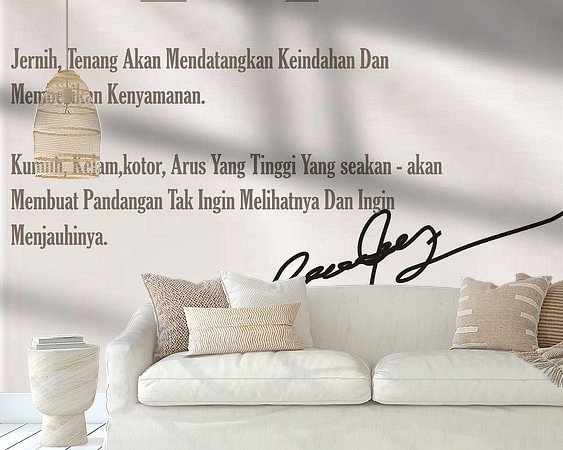 Jernih, Tenang Akan Mendatangkan Keindahan Dan
Memberikan Kenyamanan.
Kumuh, Kelam,kotor, Arus Yang Tinggi Yang seakan - akan
Membuat Pandangan Tak Ingin Melihatnya Dan Ingin
Menjauhinya.